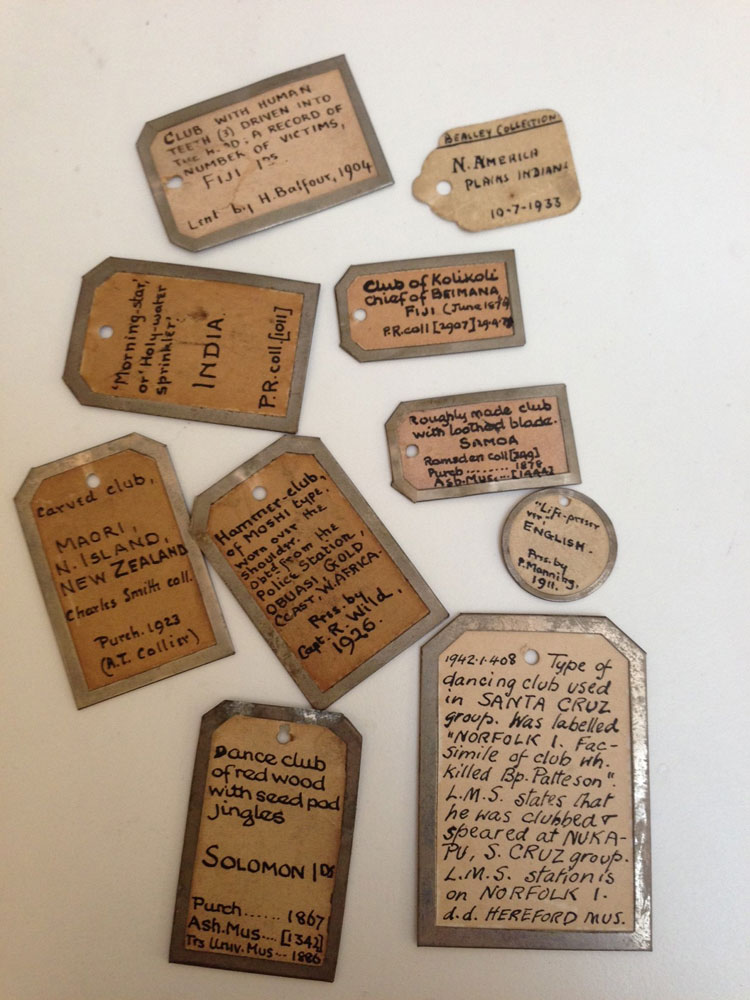 CLUB WITH HUMAN
TEETH (3) DRIVEN INTO
THE A RECORD OF
NUMBER OF VICTIMS,
FIJI IDS
Lent by H. Balfour, 1904
BEALLEY COLLECTION
N. AMERICA
PLAINS INDIANS
10-7-1933
'Morning-star,'
or 'Holy-water
sprinkler'.
INDIA.
P.R. coll. [1011]
Club of Kolikoli
chief of BEIMANA
FIJI (June 187
P.R. coll [2907]
Roughly made club
with toothed blade.
SAMOA
Ramsden coll [299]
Purch......... 1878
Ash. Mus.... [1444]
Carved club,
MAORI,
N. ISLAND,
NEW ZEALAND
Charles Smith coll.
Purch. 1923
(A.T. Collier)
Hammer-club,
of MOSHI type.
worn over the
shoulder.
Obtd from the
Police Station,
OBUASI GOLD
COAST, W. AFRICA.
Pres. by
Capt. R. Wild,
1926.
"Life-preser
ver"
ENGLISH.
Pres. by
P. Manning,
1911.
Dance club
of red wood
with seed pod
jingles
SOLOMON IDS
Purch...... 1867
Ash. Mus.... [1342]
Trs Univ. Mus... 1886
1942.1.408 Type of
dancing club used
in SANTA CRUZ
group. Was labelled
"NORFOLK I. Fac-
simile of club wh.
killed Bp. Patteson".
L.M.S. states that
he was clubbed &
speared at NUKA-
PU, S. CRUZ group.
L.M.S. station is
on NORFOLK I.
d.d. HEREFORD MUS.